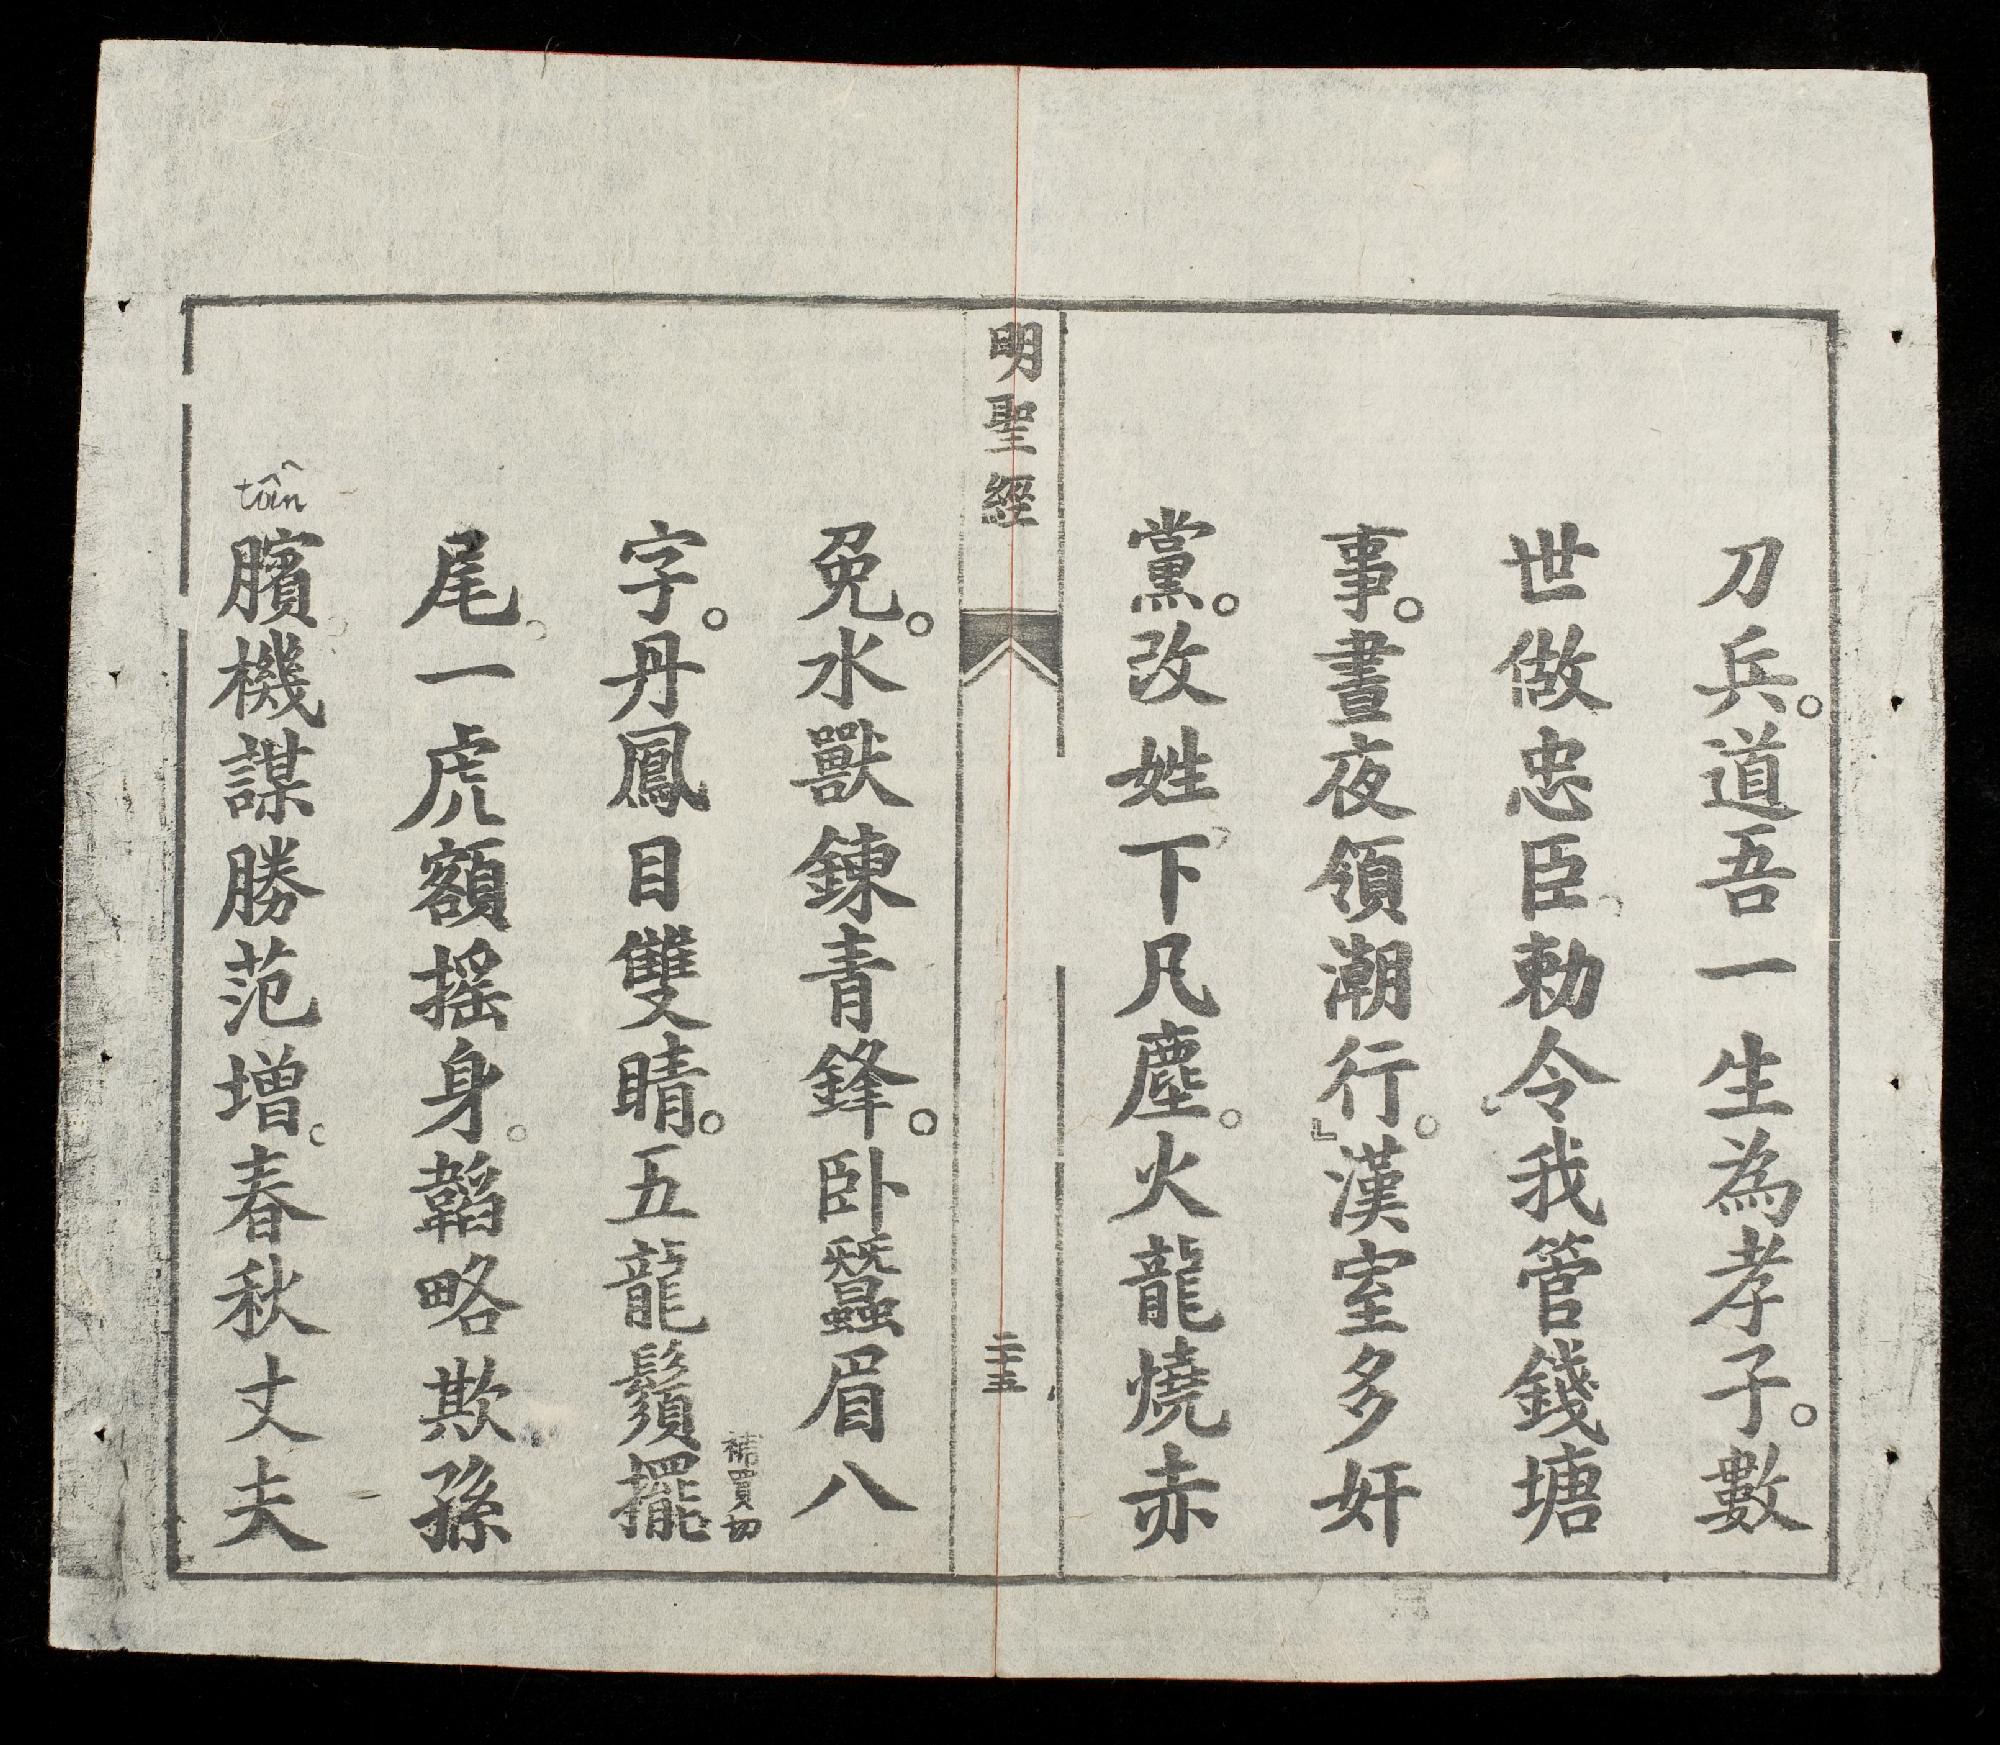 刀兵。道吾一生為孝子。數
世做忠臣勅令我管錢塘
事。晝夜領潮行。漢室多奸
黨。改姓下凡塵。火龍燒赤
明聖經
二十五
免。水獸鍊青鋒。卧蠶眉八
字。丹鳳目雙睛。五龍鬚擺
補買切
尾一虎額摇身。韜略欺孫
臏機謀勝范增。春秋丈夫